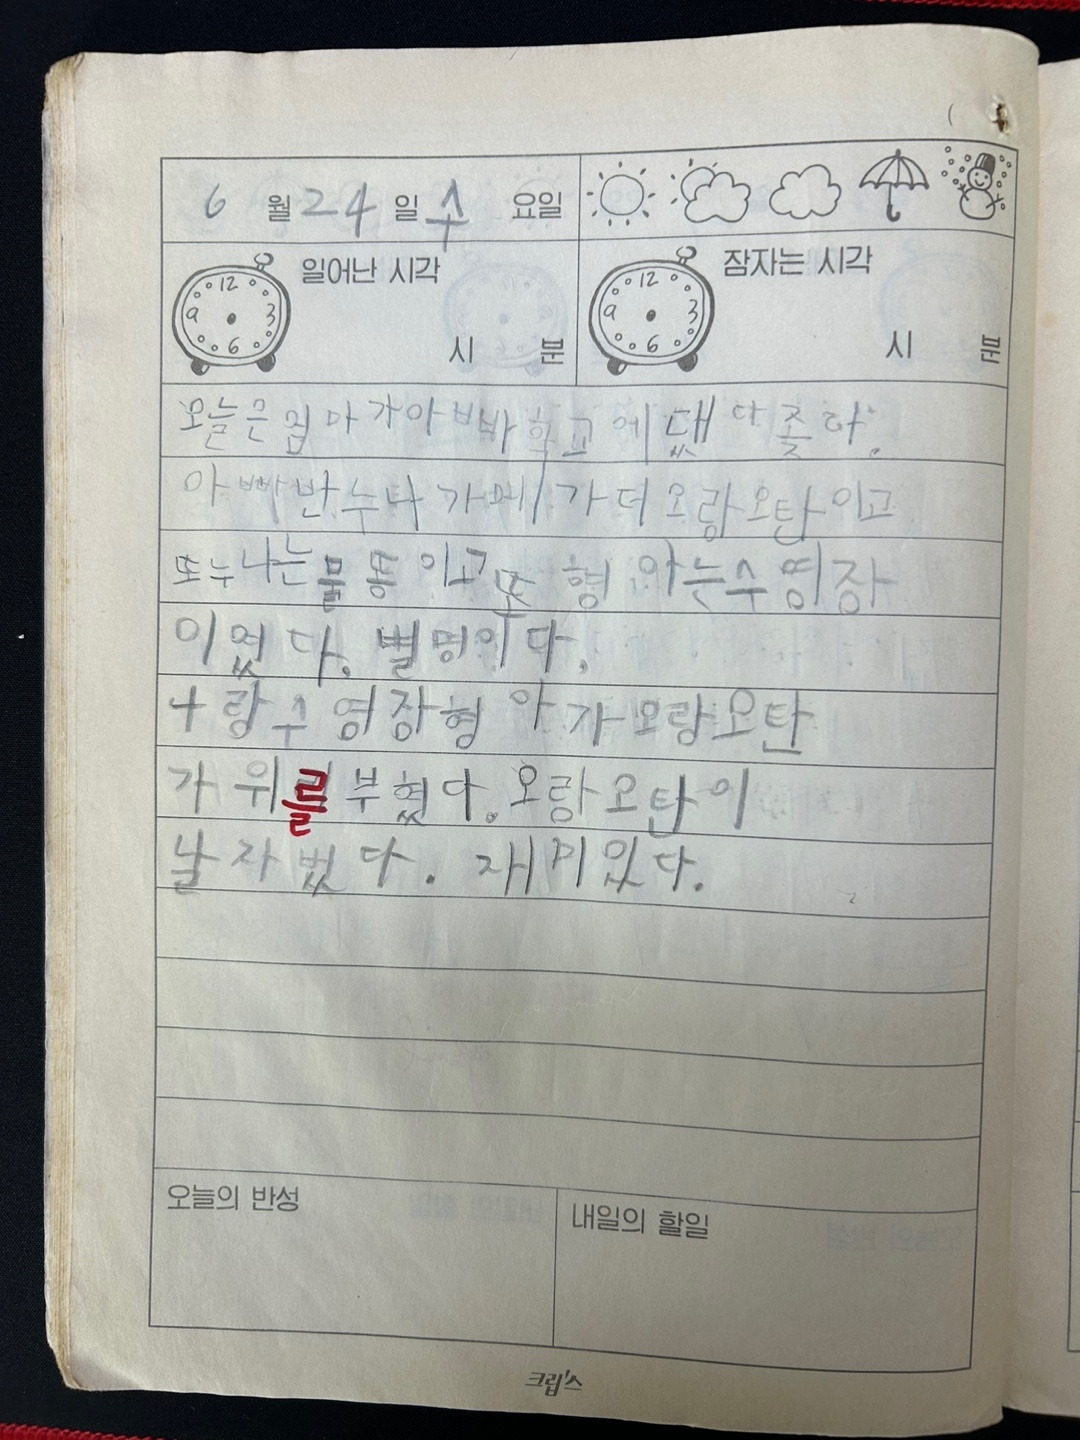 6 월 24 일 수 요일
12 3 6 9 일어난 시각
시 분
12 3 6 9 잠자는 시각
시 분
오늘은 엄마가 아빠 학교에 댔다 좋다.
아빠 반 누나 가 가 더 오랑오탄이고
또 누나는 물통이고 또 형아는 수영장
이였다. 별명이다.
나랑 수영장 형아가 오랑오탄
가위를 부혔다. 오랑오탄이
날자 벘다. 재미있다.
오늘의 반성
내일의 할일
크립스